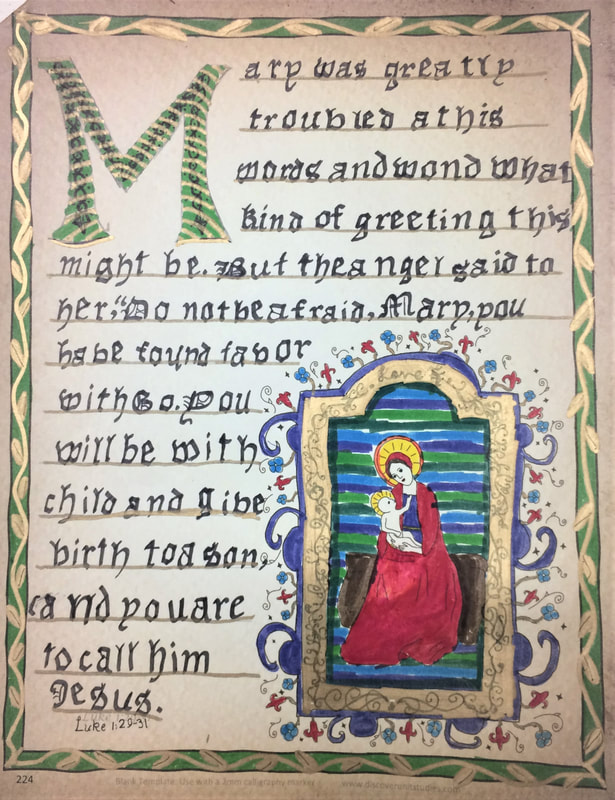 Mary was greatly
troubled at his
words and wond what
kind of greeting this
might be. But the angel said to
her, "Do not be afraid, Mary, you
have found favor
with Go. You
will be with
child and give
birth to a son,
and you are
to call him
Jesus.
Luke 1:29-31
224
Blank Template: Use with a 2mm calligraphy marker